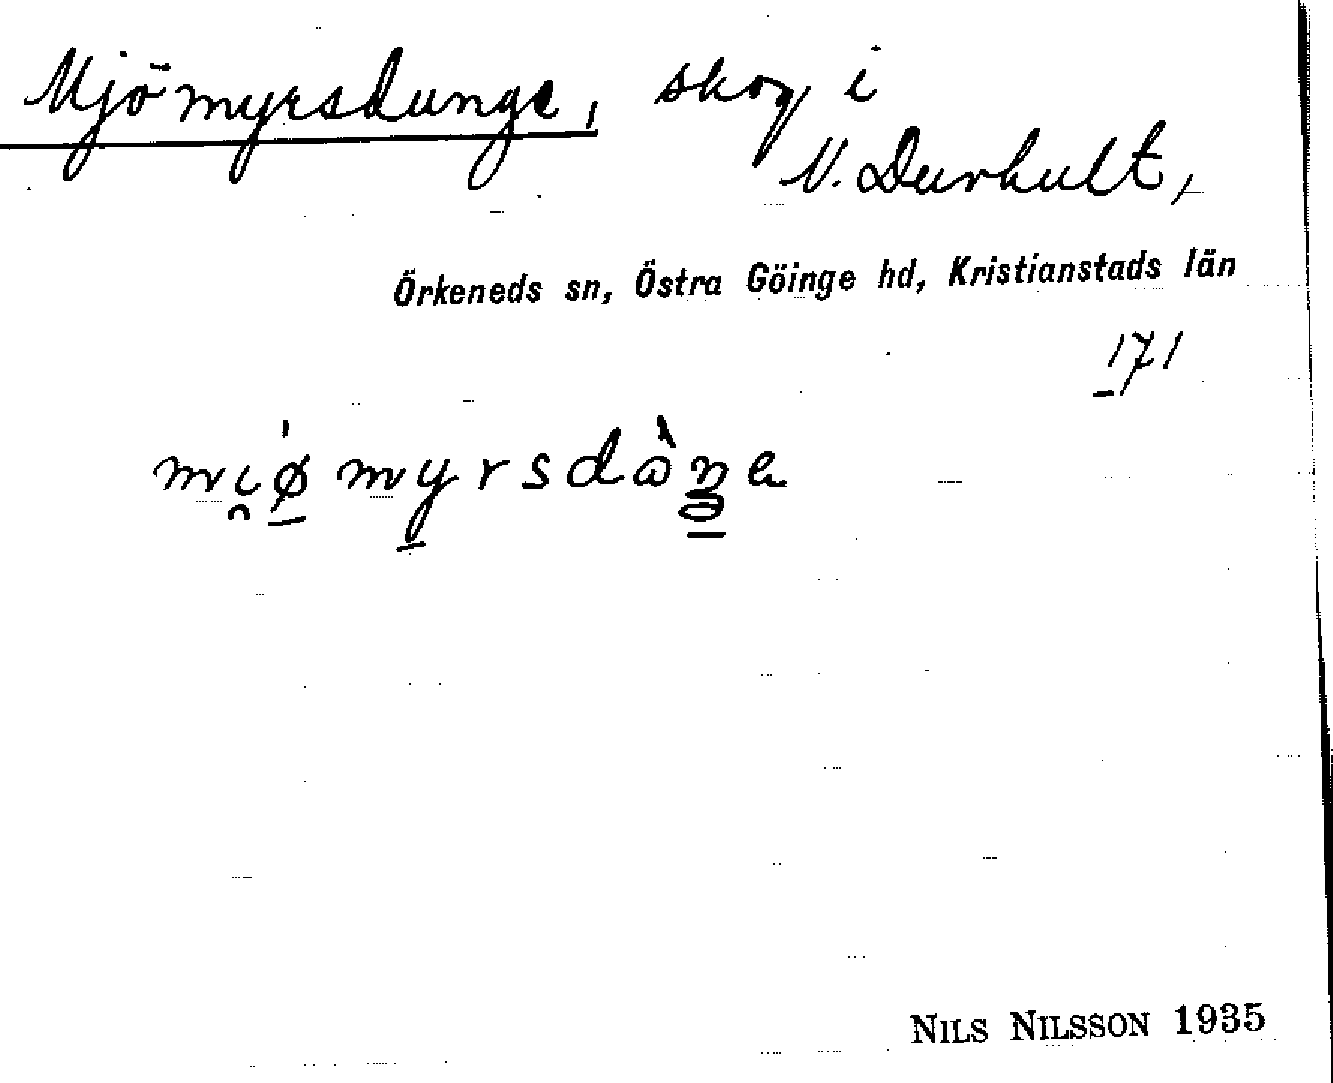 Mjömyrsdunge, skog i
N. Duvhult,
Örkeneds sn, Östra Göinge hd, Kristianstads län
171
Nils Nilsson 1935